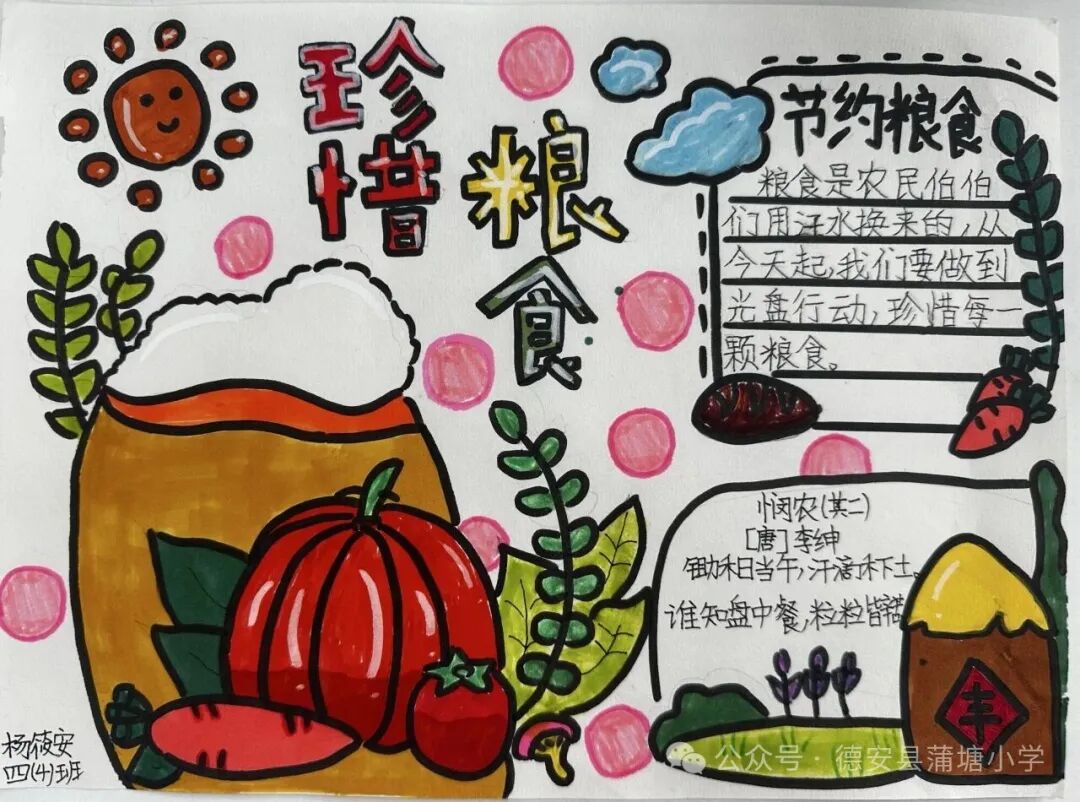 珍惜
粮
食
节约粮食
粮食是农民伯伯
们用汗水换来的,从
今天起,我们要做到
光盘行动,珍惜每一
颗粮食。
悯农(其二)
[唐]李绅
锄禾日当午,汗滴禾下土。
谁知盘中餐,粒粒皆
丰
杨筱安
四(4)班
公众号·德安县蒲塘小学